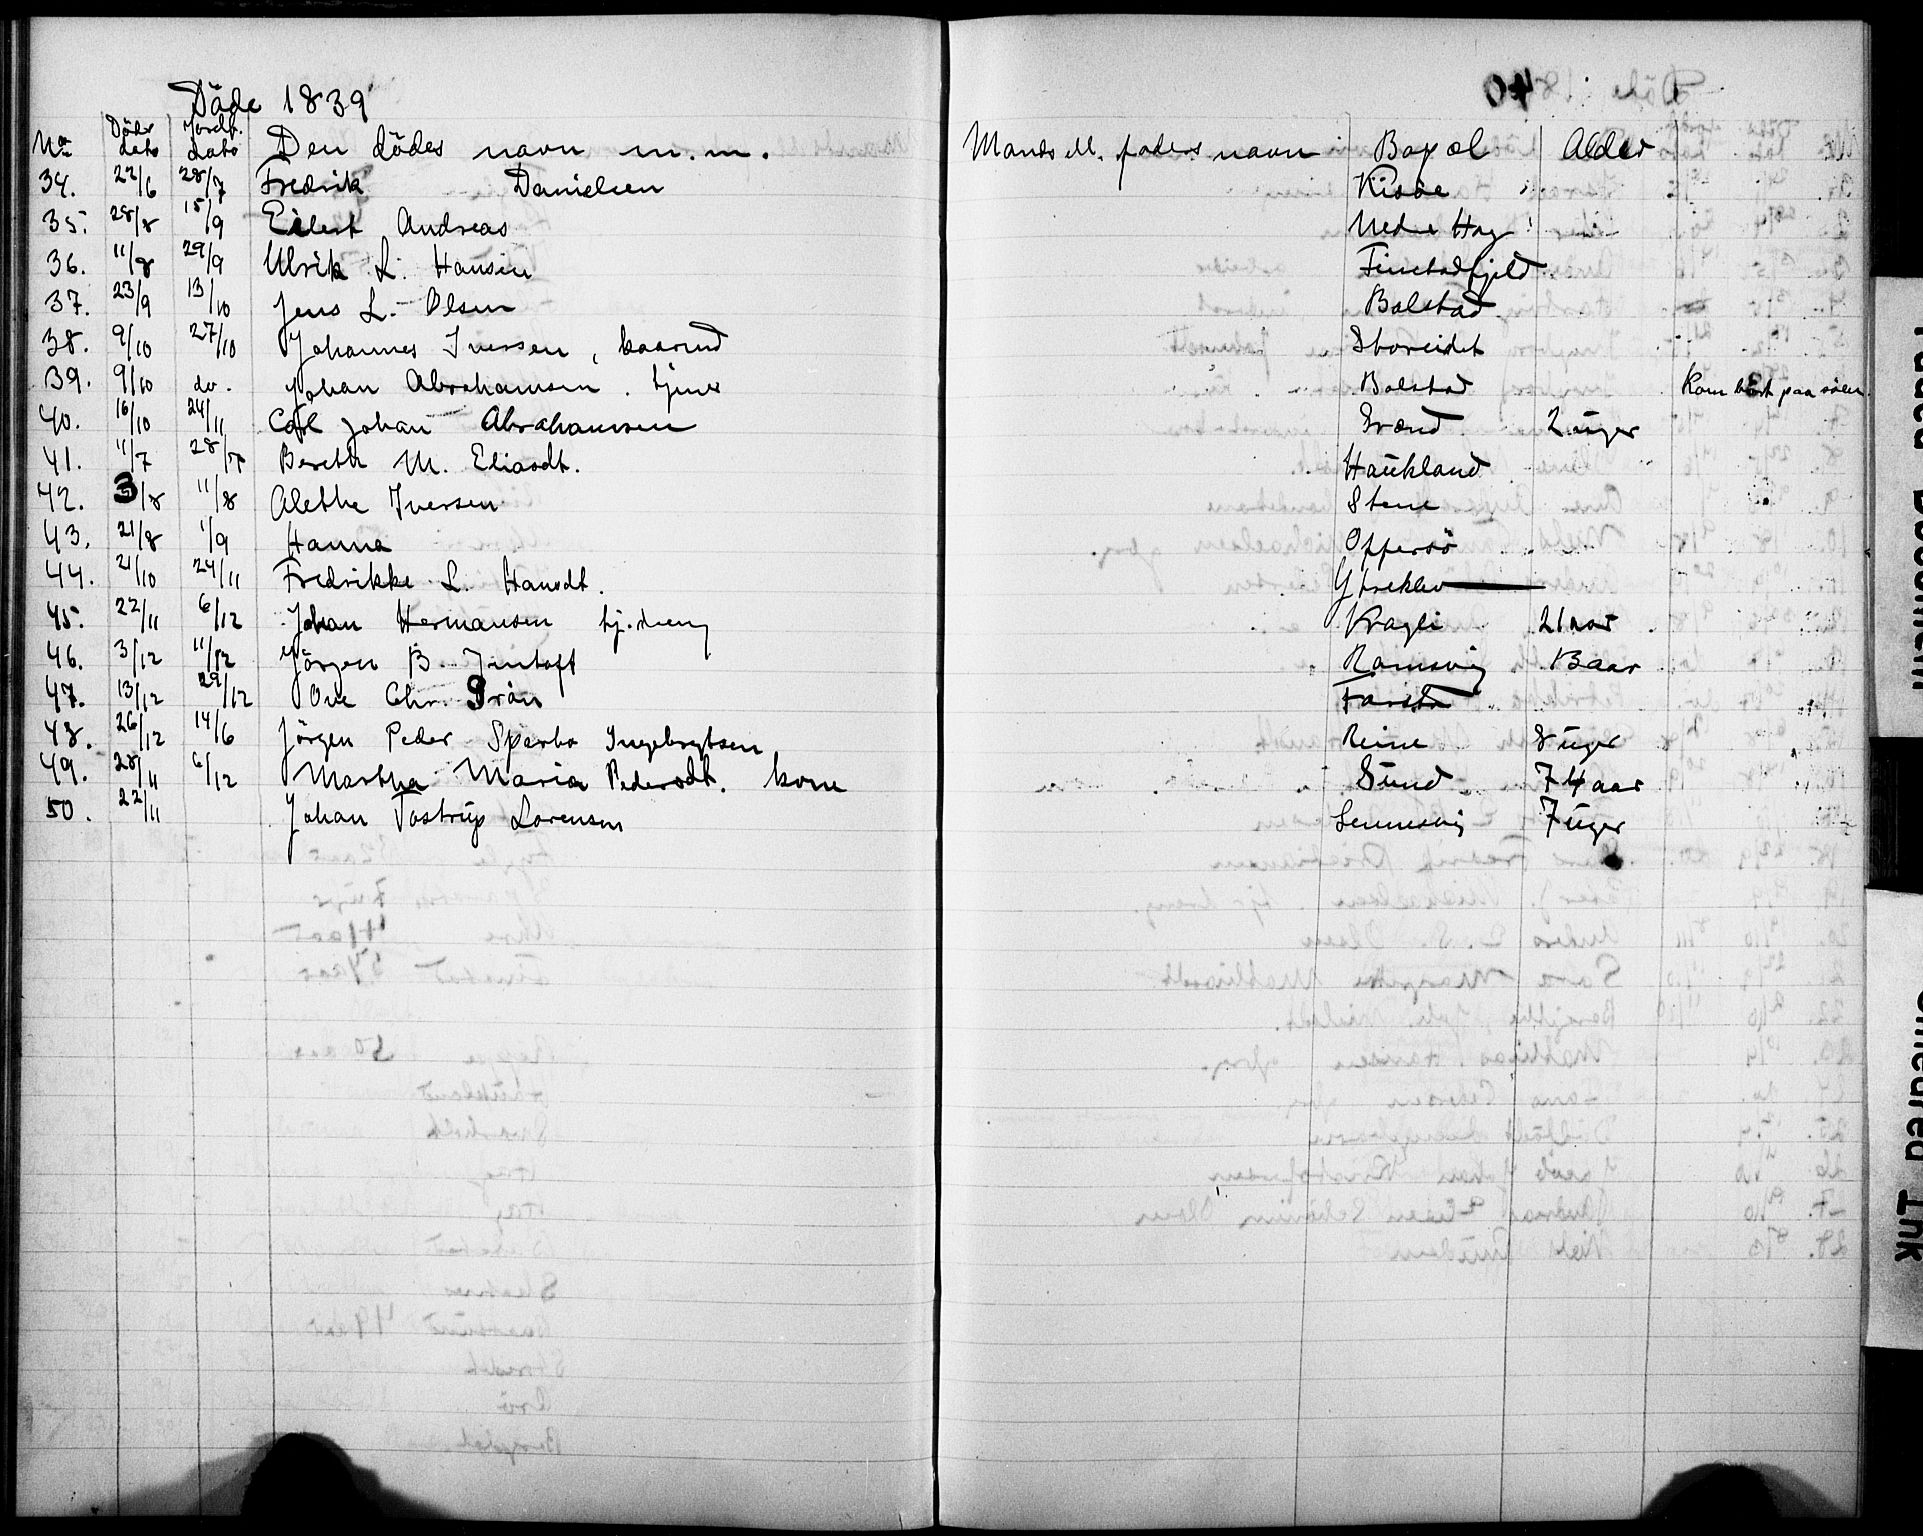 Döde 1839 40
No Döds dato Jordf. dato Den dödes navn m.m. Mands ell. faders navn Bopæl Alder
34. 22/6 28/7 Fredrik Danielsen Kisöe
35. 28/8 15/9 Eilert Andreas Nedre Hag
36. 11/8 29/9 Ulrik L. Hansen Finstadfjeld
37. 23/9 13/10 Jens L. Olsen Bolstad
38. 9/10 27/10 Johannes Iversen, baamd Storeidet
39. 9/10 do. Johan Abrahamsen. tjener Bolstad Kom bort paa söen
40. 16/10 24/11 Carl Johan Abrahamsen Brænd 2 üger
41. 11/7 28/7 Berethe M. Eliasdt. Haükland
42. 3/8 11/8 Alethe Iversen Stene
43. 21/8 1/9 Hanna Offersö
44. 21/10 24/11 Fredrikke L. Hansdt. Ytreklev
45. 22/11 6/12 Johan Hermansen tj.dreng Vragli 21 aar
46. 3/12 11/12 Jörgen B. Jentoft Ramsvig 3 aar
47. 13/12 29/12 Ove Chr. Grön Farstad
48. 26/12 14/6 Jörgen Peder Sperbo Ingebrigtsen Reine 8 üger
49. 28/11 6/12 Martha Maria Pedersdt. kone Sünd 74 aar
50. 22/11 Johan Tostrüp Lorensen Sennesvig 7 üger